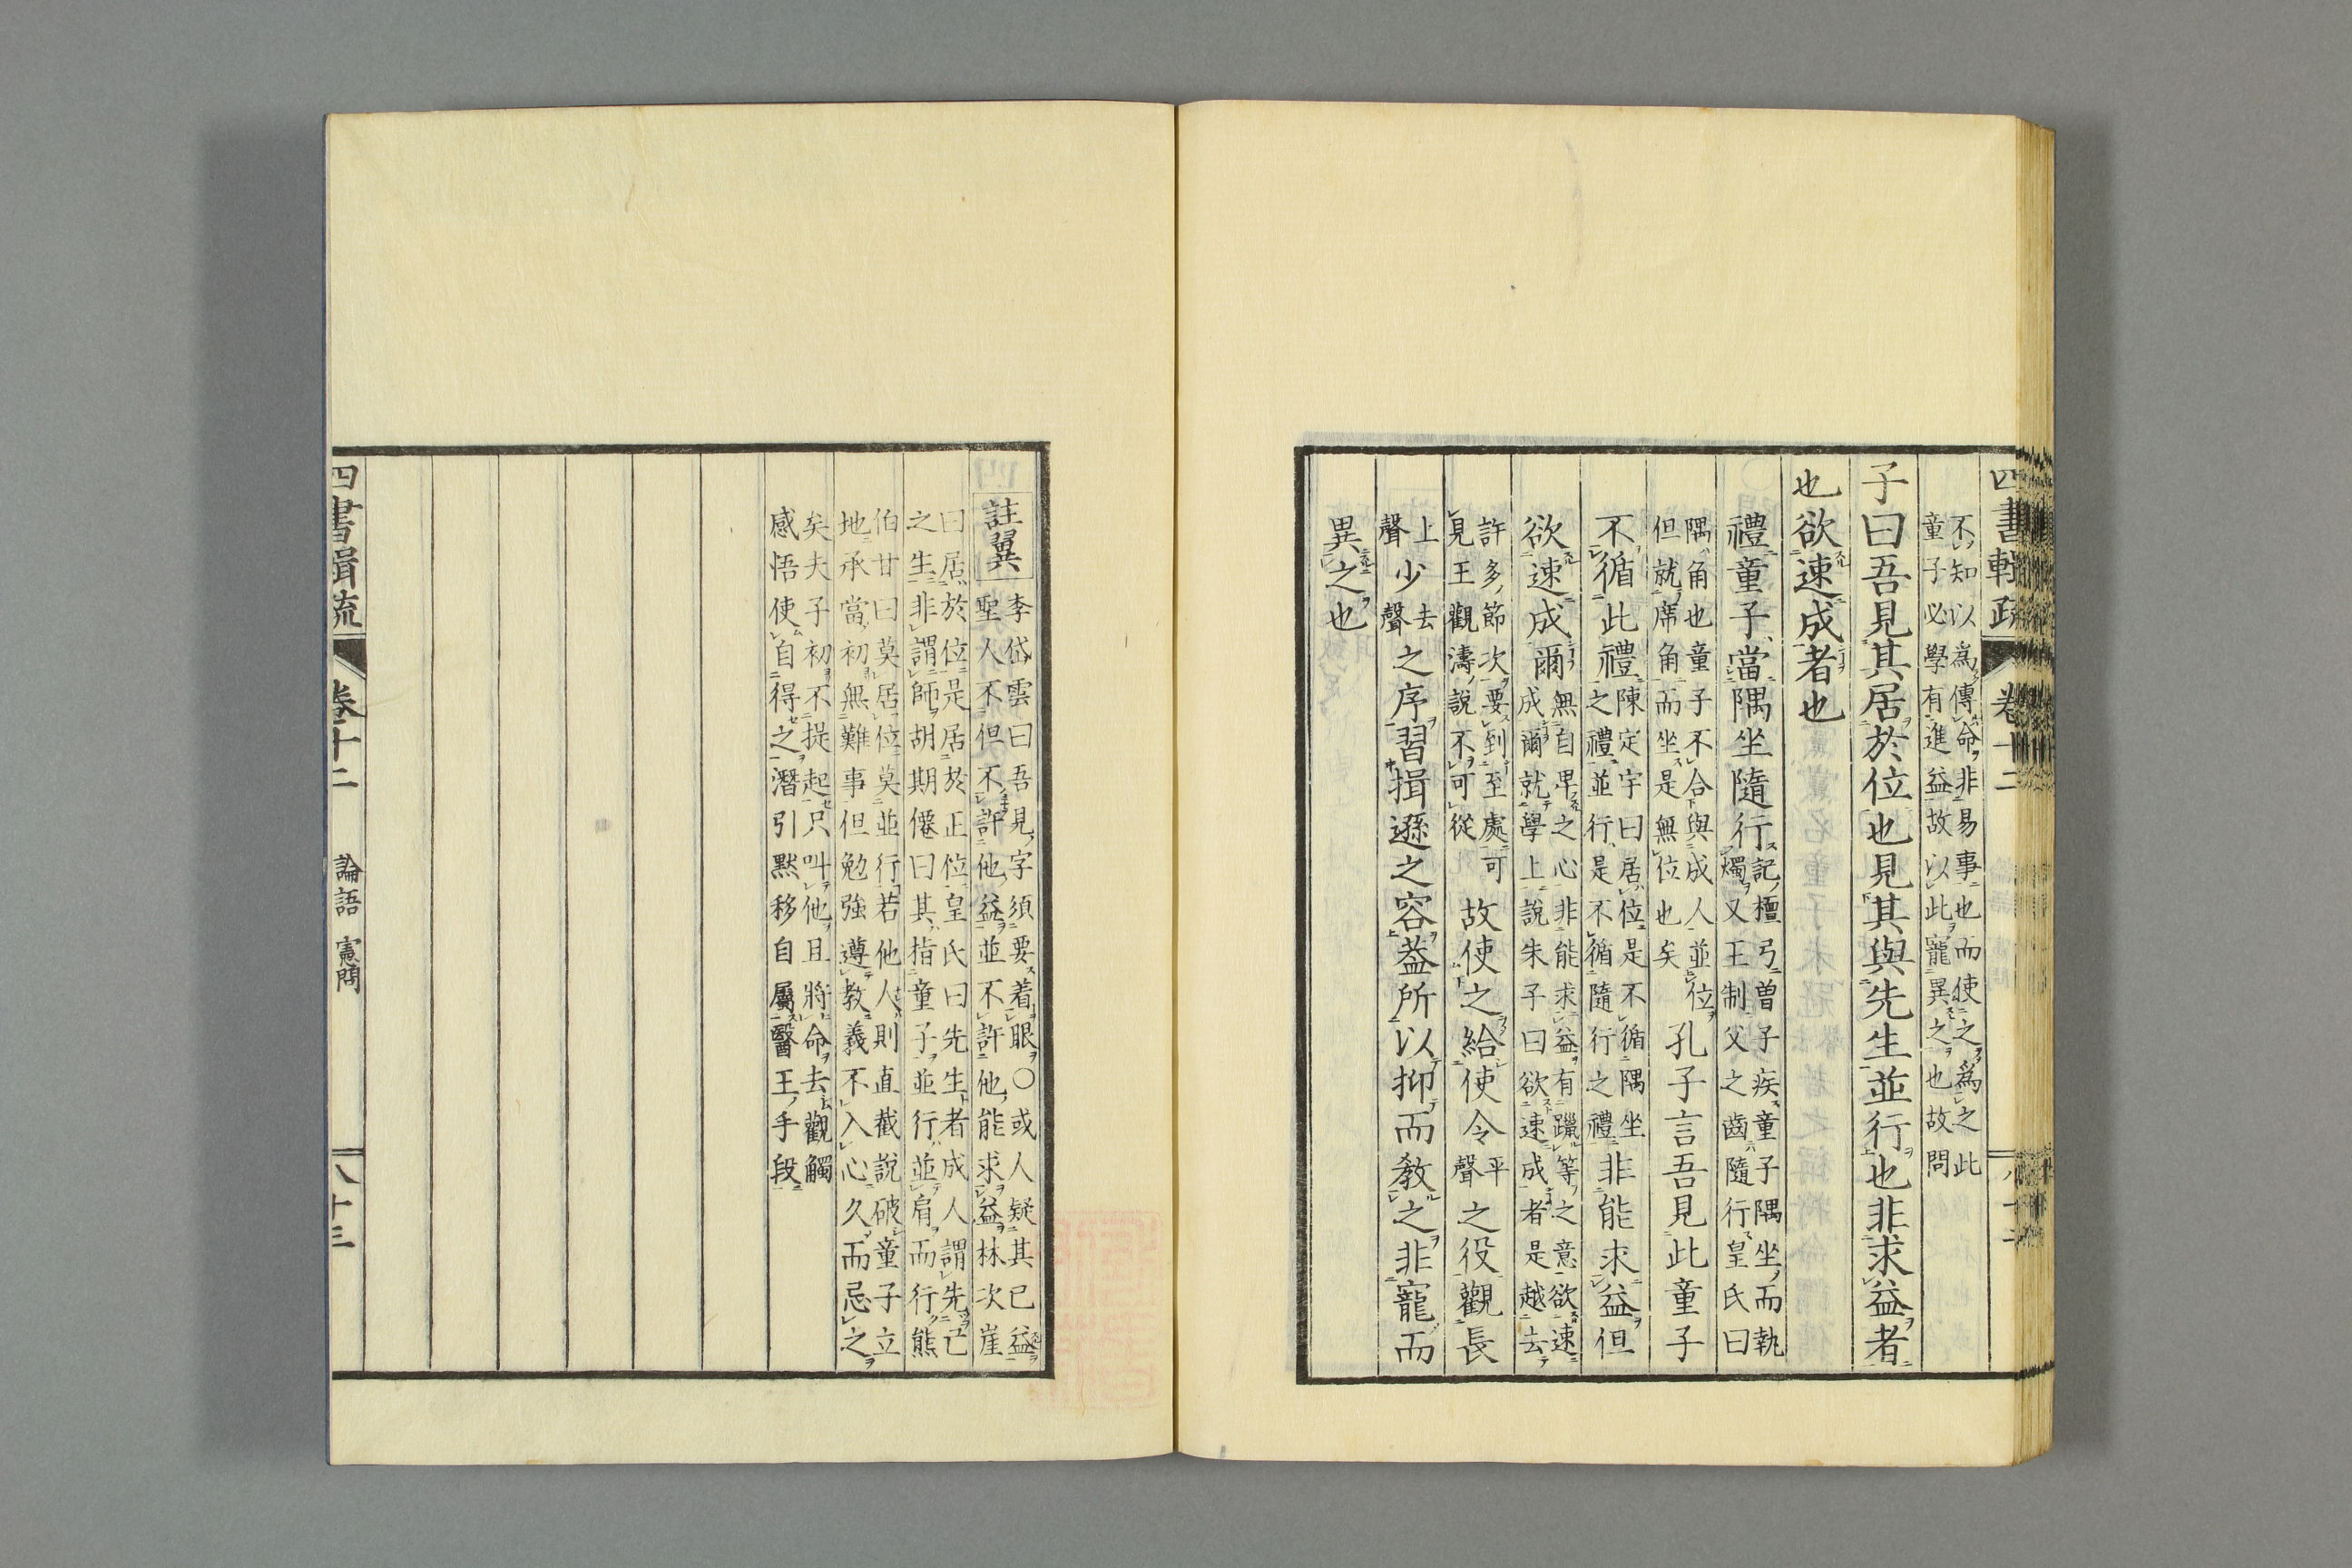 四書輯疏
卷十二
八十二
不知以為傳命非易事也而使之為之此
童子必學有進益故以此寵異之也故問
子曰吾見其居於位也見其與先生並行也非求益者
也欲速成者也
禮童子當隅坐隨行
記檀弓曽子疾童子隅坐而執
燭又王制父之齒隨行皇氏曰
隅角也童子不合與成人並位
但就席角而坐是無位也矣
孔子言吾見此童子
不循此禮
陳定宇曰居位是不循隅坐
之禮並行是不循隨行之禮
非能求益但
欲速成爾
無自卑之心非能求益有躐等之意欲速
成爾就學上說朱子曰欲速成者是越去
許多節次要到至處可
見王觀濤說不可從
故使之給使令
平
聲
之役觀長
上
聲
少
去
聲
之序習揖遜之容葢所以抑而教之非寵而
異之也
註翼
李岱雲曰吾見字須要着眼〇或人疑其已益
聖人不但不許他益並不許他能求益林次崖
曰居於位是居於正位皇氏曰先生者成人謂先已
之生非謂師胡期僊曰其指童子並行並肩而行熊
伯甘曰莫居位莫並行若他人則直截說破童子立
地承當初無難事但勉強遵教義不入心久而忌之
矣夫子初不提起只叫他且將命去觀觸
感悟使自得之潛引默移自屬醫王手段
四書輯疏
卷十二
論語 憲問
八十三